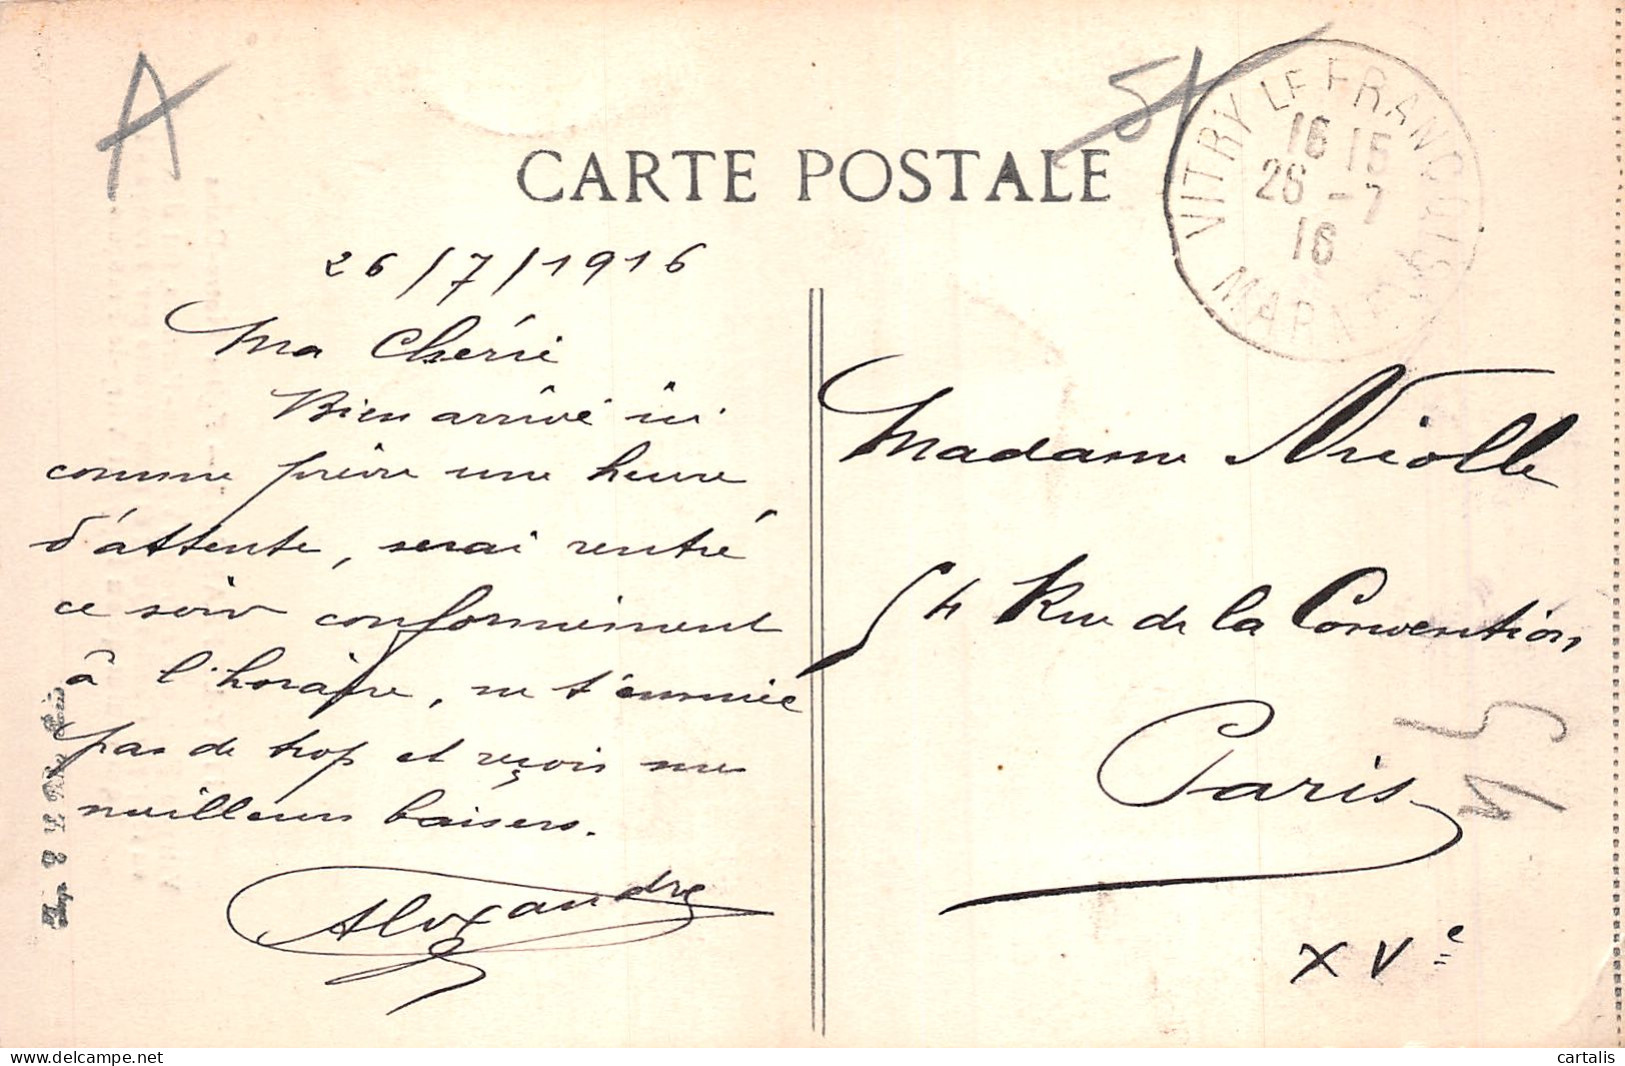 A
5
CARTE POSTALE
VITRY LE FRANCOIS
16 15
26 - 7
16
MARNE
26/7/1916
Ma Chérie
Bien arrivé ici
comme prévu une heure
d'attente, serai rentré
ce soir conformément
à l'horaire, ne t'ennuie
pas de trop et reçois mes
meilleurs baisers.
Alexandre
Madame Niolle
54 Rue de la Convention
Paris
XVe
Imp.
cartalis